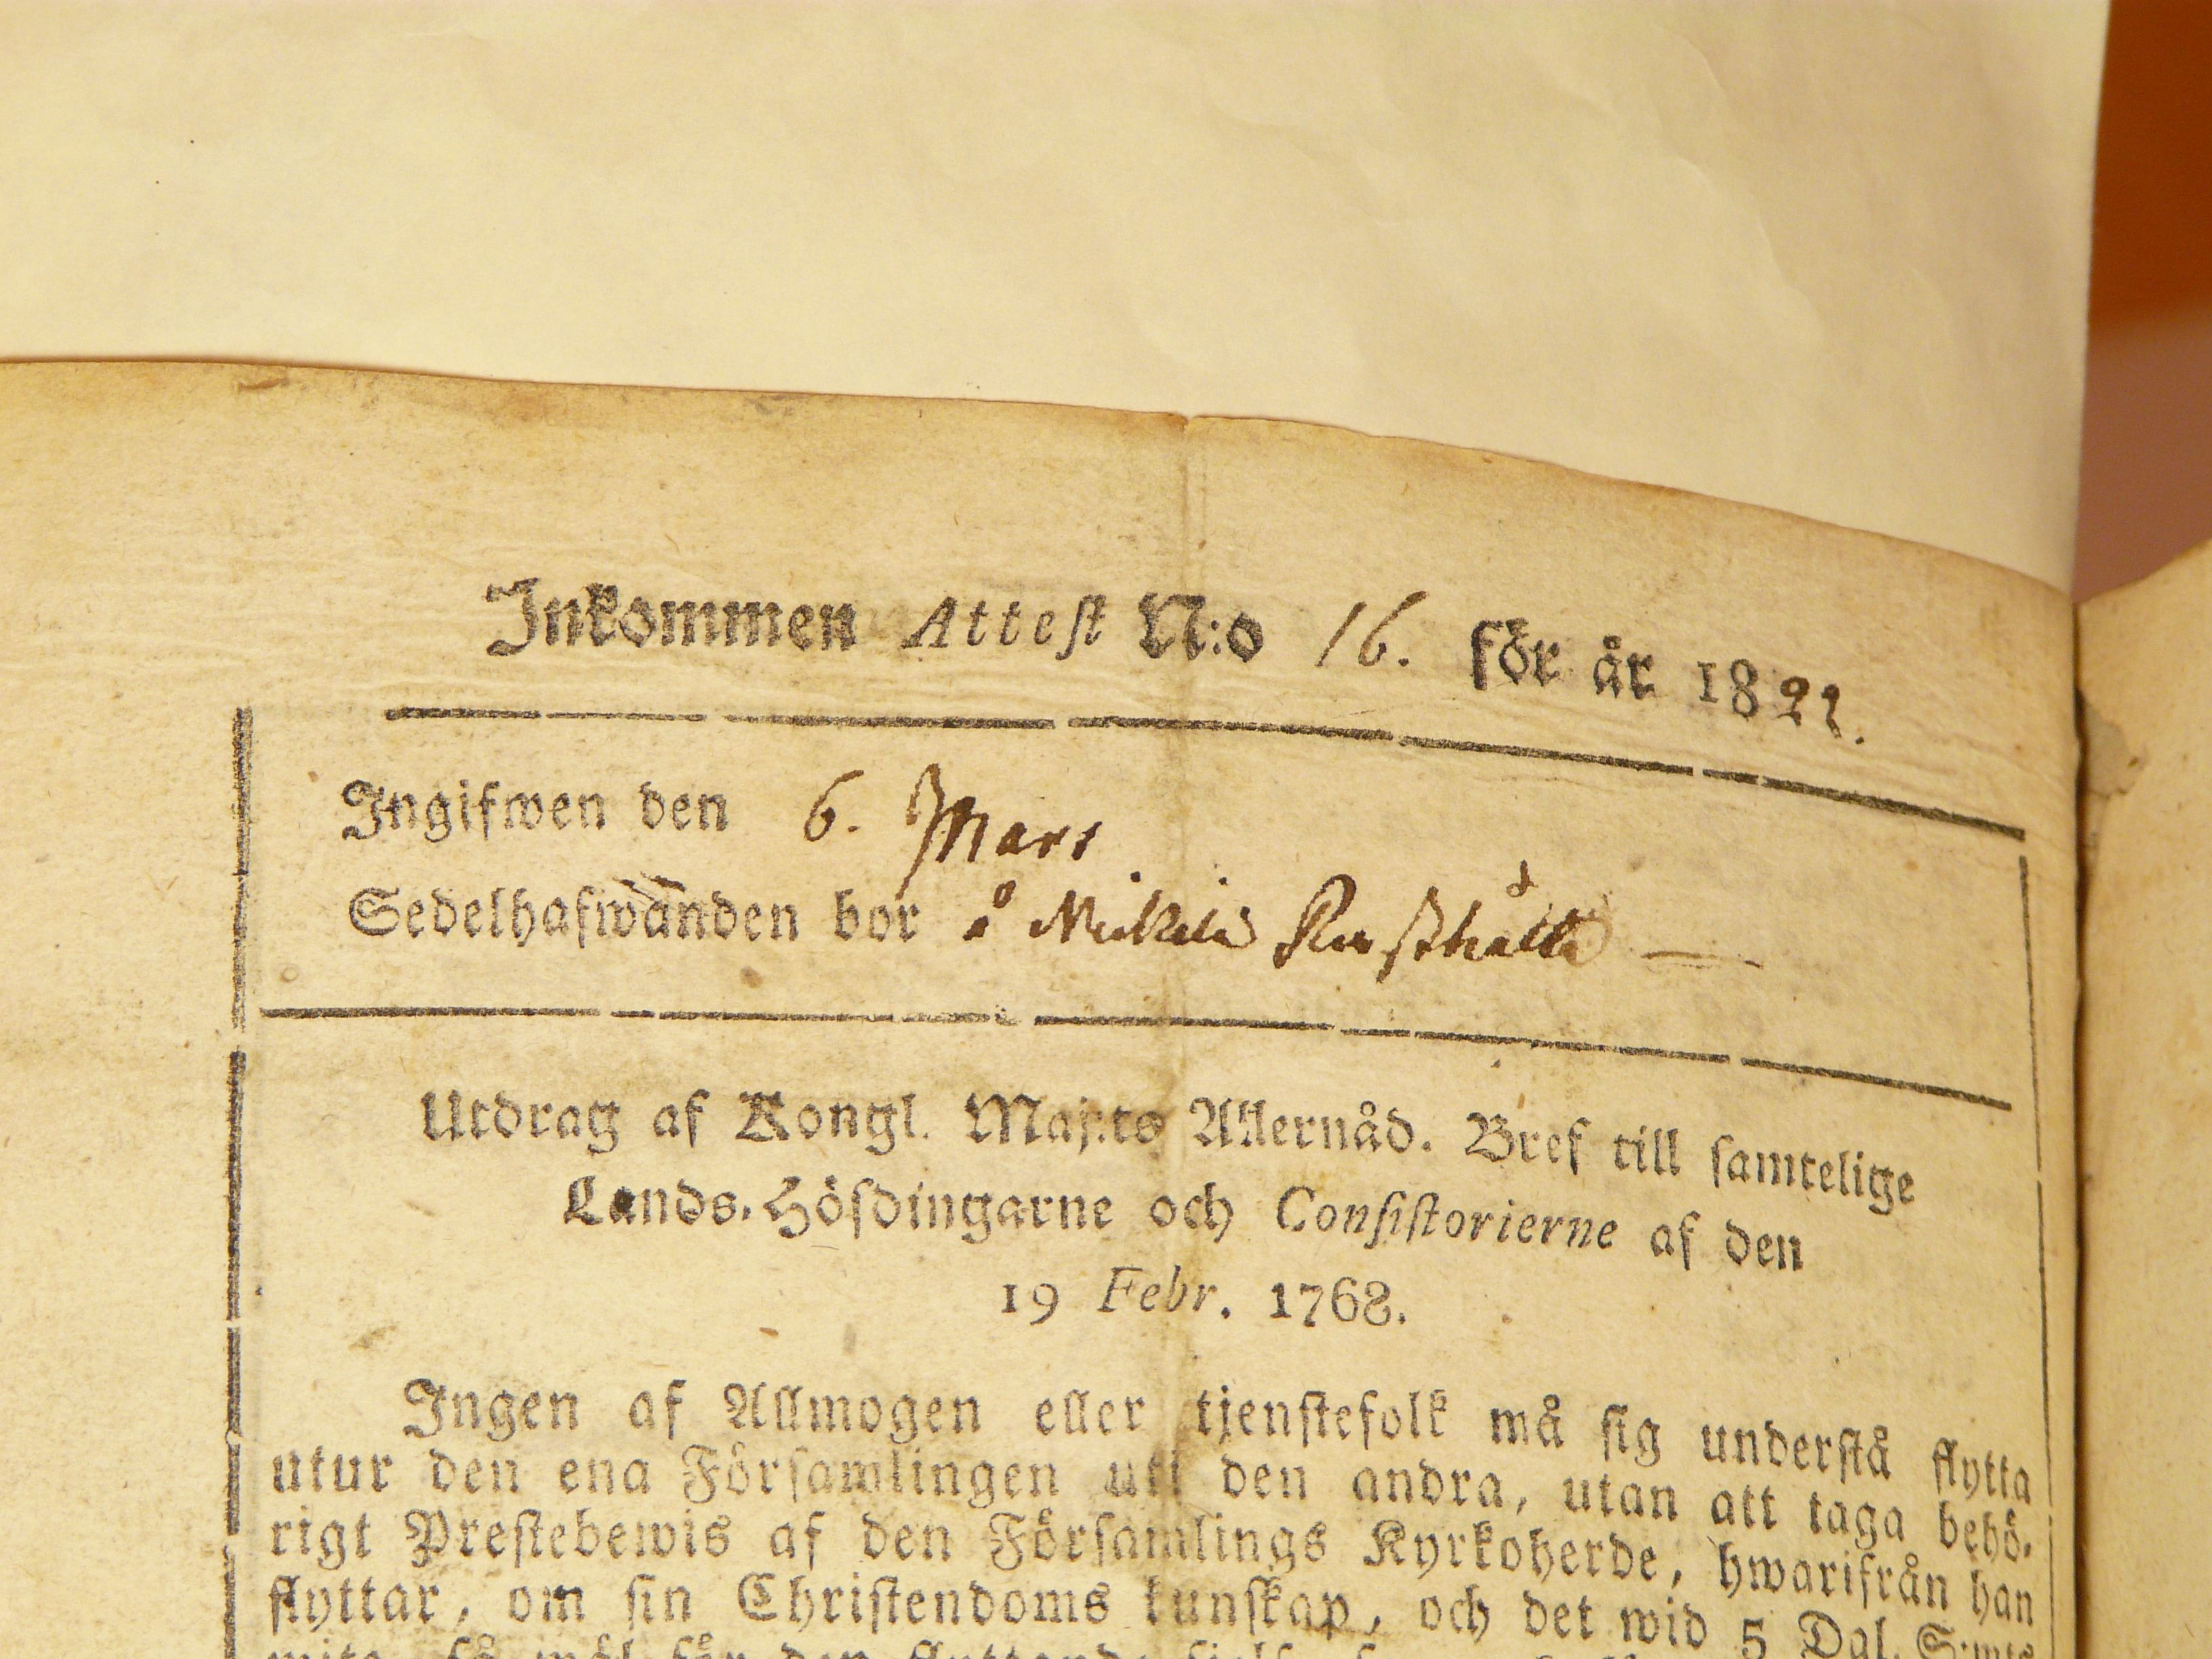 Inkommen Attest N:o 16. för år 1822.
Ingifwen den 6. Mars
Sedelhafwanden bor å Rusthåll
Utdrag af Kongl. Maj:ts Allernåd. Bref till samtelige
Lands-Höfdingarne och Consistorierne af den
19 Febr. 1768.
Ingen af Allmogen eller tjenstefolk må sig understå flytta
utur den ena Församlingen uti den andra, utan att taga behö-
rigt Prestebewis af den Församlings Kyrkoherde, hwarifrån han
flyttar, om sin Christendoms kunskap, och det wid 5 Dal. S:mts